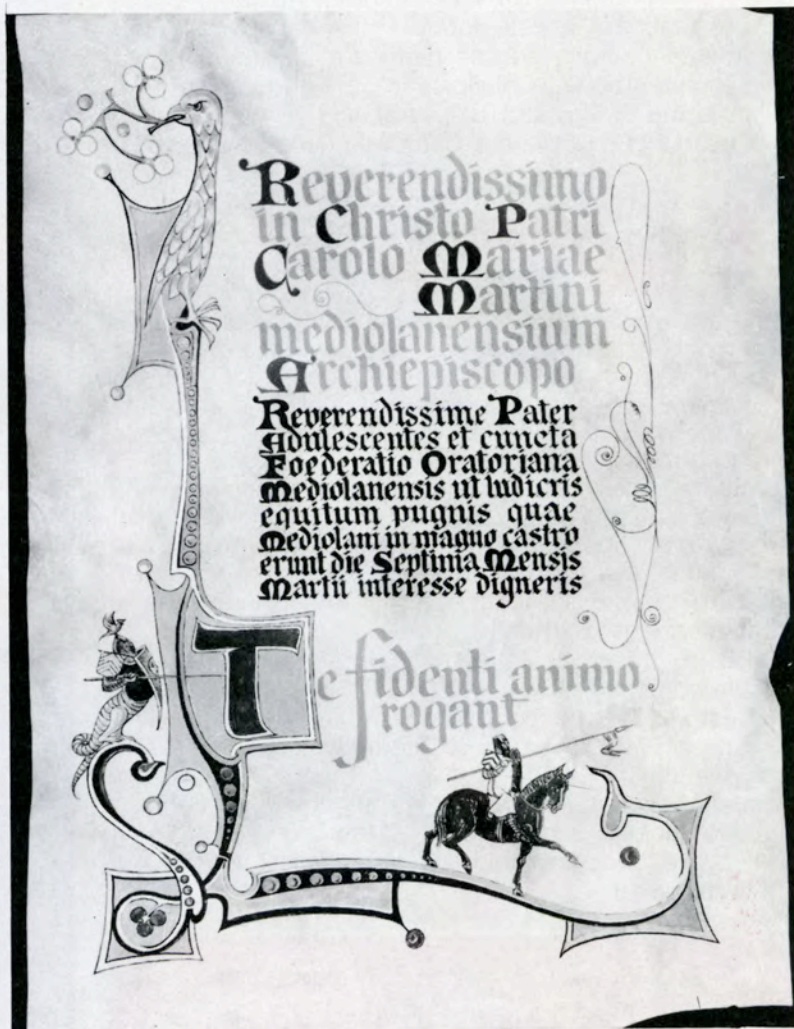 Reverendissimo
in Christo Patri
Carolo Mariae
Martini
mediolanensium
Archiepiscopo
Reverendissime Pater
Adulescentes et cuncta
Foederatio Oratoriana
Mediolanensis ut ludicris
equitum pugnis quae
Mediolani in magno castro
erunt die Septima Mensis
Martii interesse digneris
Te fidenti animo
rogant